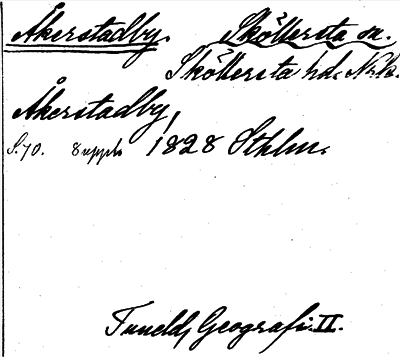 Åkerstadby. Sköllersta sn.
Sköllersta hd. Nrke.
Åkerstadby,
S. 70. 8 uppl. 1828 Sthlm.
Tuneld, Geografi. II.